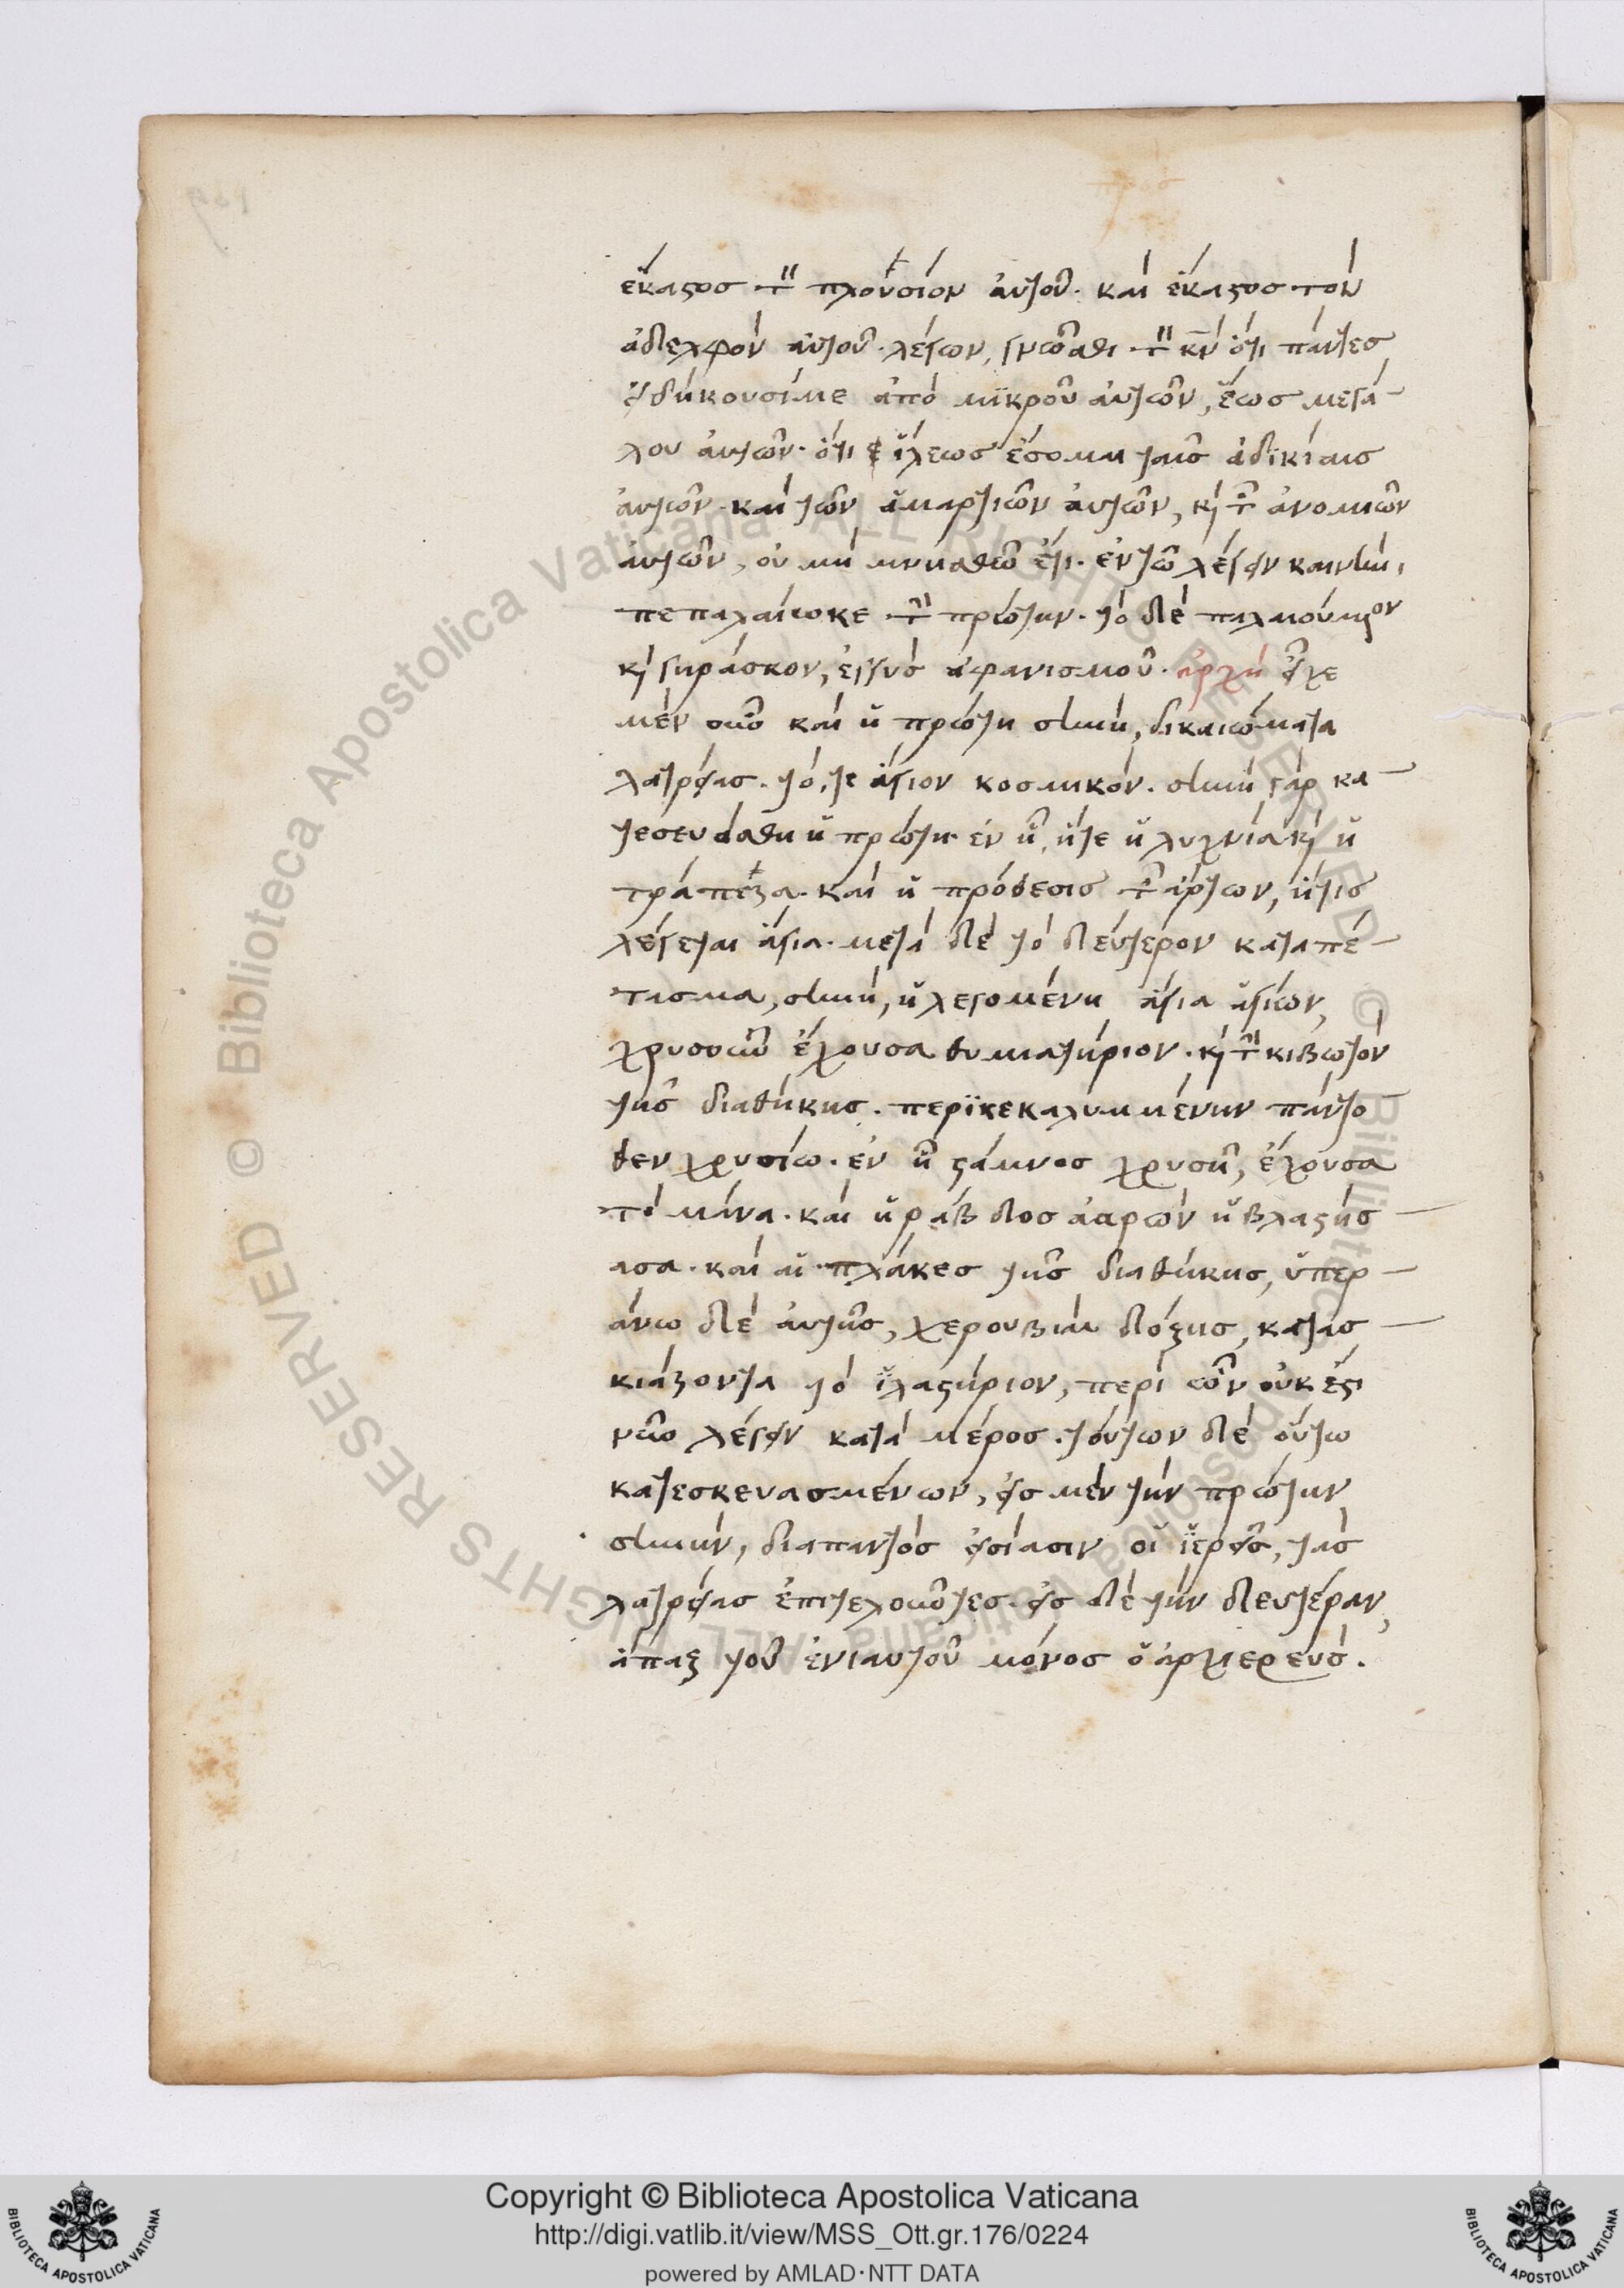 ἕκαστος τ πλουσίον αὐτοῦ. καὶ ἕκαστος τὸν
ἀδελφὸν αὐτοῦ. λέγων, γνῶσθι τ κν ὅτι πάντες
εἰδήκουσί με ἀπὸ μϊκροῦ αὐτῶν, ἕως μεγά
λου αὐτῶν. ὅτι ἵλεως ἔσομαι ταῖς ἀδϊκίαις
αὐτῶν. καὶ τῶν ἁμαρτιῶν αὐτῶν, κὶ τ ἀνομιῶν
αὐτῶν, οὐ μὴ μνησθῶ ἔτι. ἐν τῶ λέγειν καινὴν,
πεπαλαίωκε τ πρώτην. τὸ δὲ παλαιούμον
κὶ γηράσκον, ἐγγὺς ἀφανισμοῦ. ἀρχὴ εἶχε
μὲν οὖν καὶ ἡ πρώτη σκηνὴ, δικαιώματα
λατρείας. τό, τε ἅγιον κοσμικόν. σκηνὴ γὰρ κα
τεσευάσθη ἡ πρώτη ἐν ἧ, ἥτε ἡ λυχνία κὶ ἡ
τράπεζα. καὶ ἡ πρόθεσις τ ἄρτων, ἥτις
λέγεται ἅγια. μετὰ δὲ τὸ δεύτερον καταπέ
τασμα, σκηνὴ, ἡ λεγομένη ἅγια ἁγίων,
χρυσοῦν ἔχουσα θυμιατήριον. κὶ τ κιβωτὸν
τῆς διαθήκης. περϊκεκαλυμμένην πάντο
θεν χρυσίω. ἐν ἧ στάμνος χρυσῆ, ἔχουσα
τὸ μάνα. καὶ ἡ ράβδος ἀαρὼν ἡ βλαστής
ασα. καὶ αἱ πλάκες τῆς διαθήκης, ὑπερ
άνω δὲ αὐτῆς, χερουβὶμ δόξης, κατας
κιάζοντα τὸ ἱλαστήριον, περὶ ὧν οὐκ ἔστι
νῦν λέγειν κατὰ μέρος. τούτων δὲ οὕτω
κατεσκευασμένων, εἰς μὲν τὴν πρώτην
σκηνὴν, διαπαντὸς εἰσίασιν οἱ ἱερεῖς, τὰς
λατρείας ἐπιτελοῦντες. εἰς δὲ τὴν δευτέραν,
ἅπαξ τοῦ ἐνιαυτοῦ μόνος ὁ ἀρχιερεύς.
© Biblioteca Apostolica Vaticana ALL RIGHTS RESERVED © Biblioteca Apostolica Vaticana ALL RIGHTS RESERVED
Copyright © Biblioteca Apostolica Vaticana
http://digi.vatlib.it/view/MSS_Ott.gr.176/0224
powered by AMLAD·NTT DATA
BIBLIOTECA APOSTOLICA VATICANA
BIBLIOTECA APOSTOLICA VATICANA